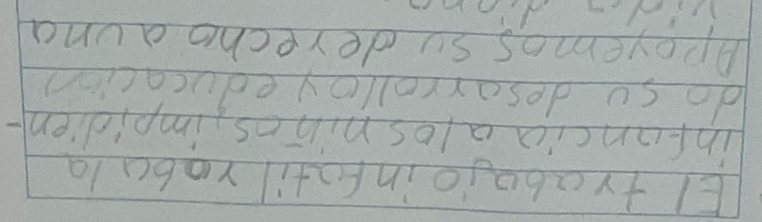 El trabajo infatil roba la
infancia a los niños, impidien-
do su desarrollo y educación
Apoyemos su derecho a una
vida digna